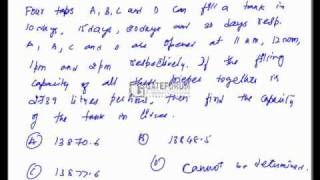 Four taps A, B, C and D can fill a tank in
10 days, 15 days, 20 days and 30 days resp.
A, B, C and D are opened at 11 am, 12 noon,
1pm and 2pm respectively. If the filling
capacity of all pipes together is
litres per hour, then find the capacity
of the tank in litres.
GATEFORUM
(A) 13870.6 (B) 13848.5
(C) 13877.6 (D) Cannot be determined.